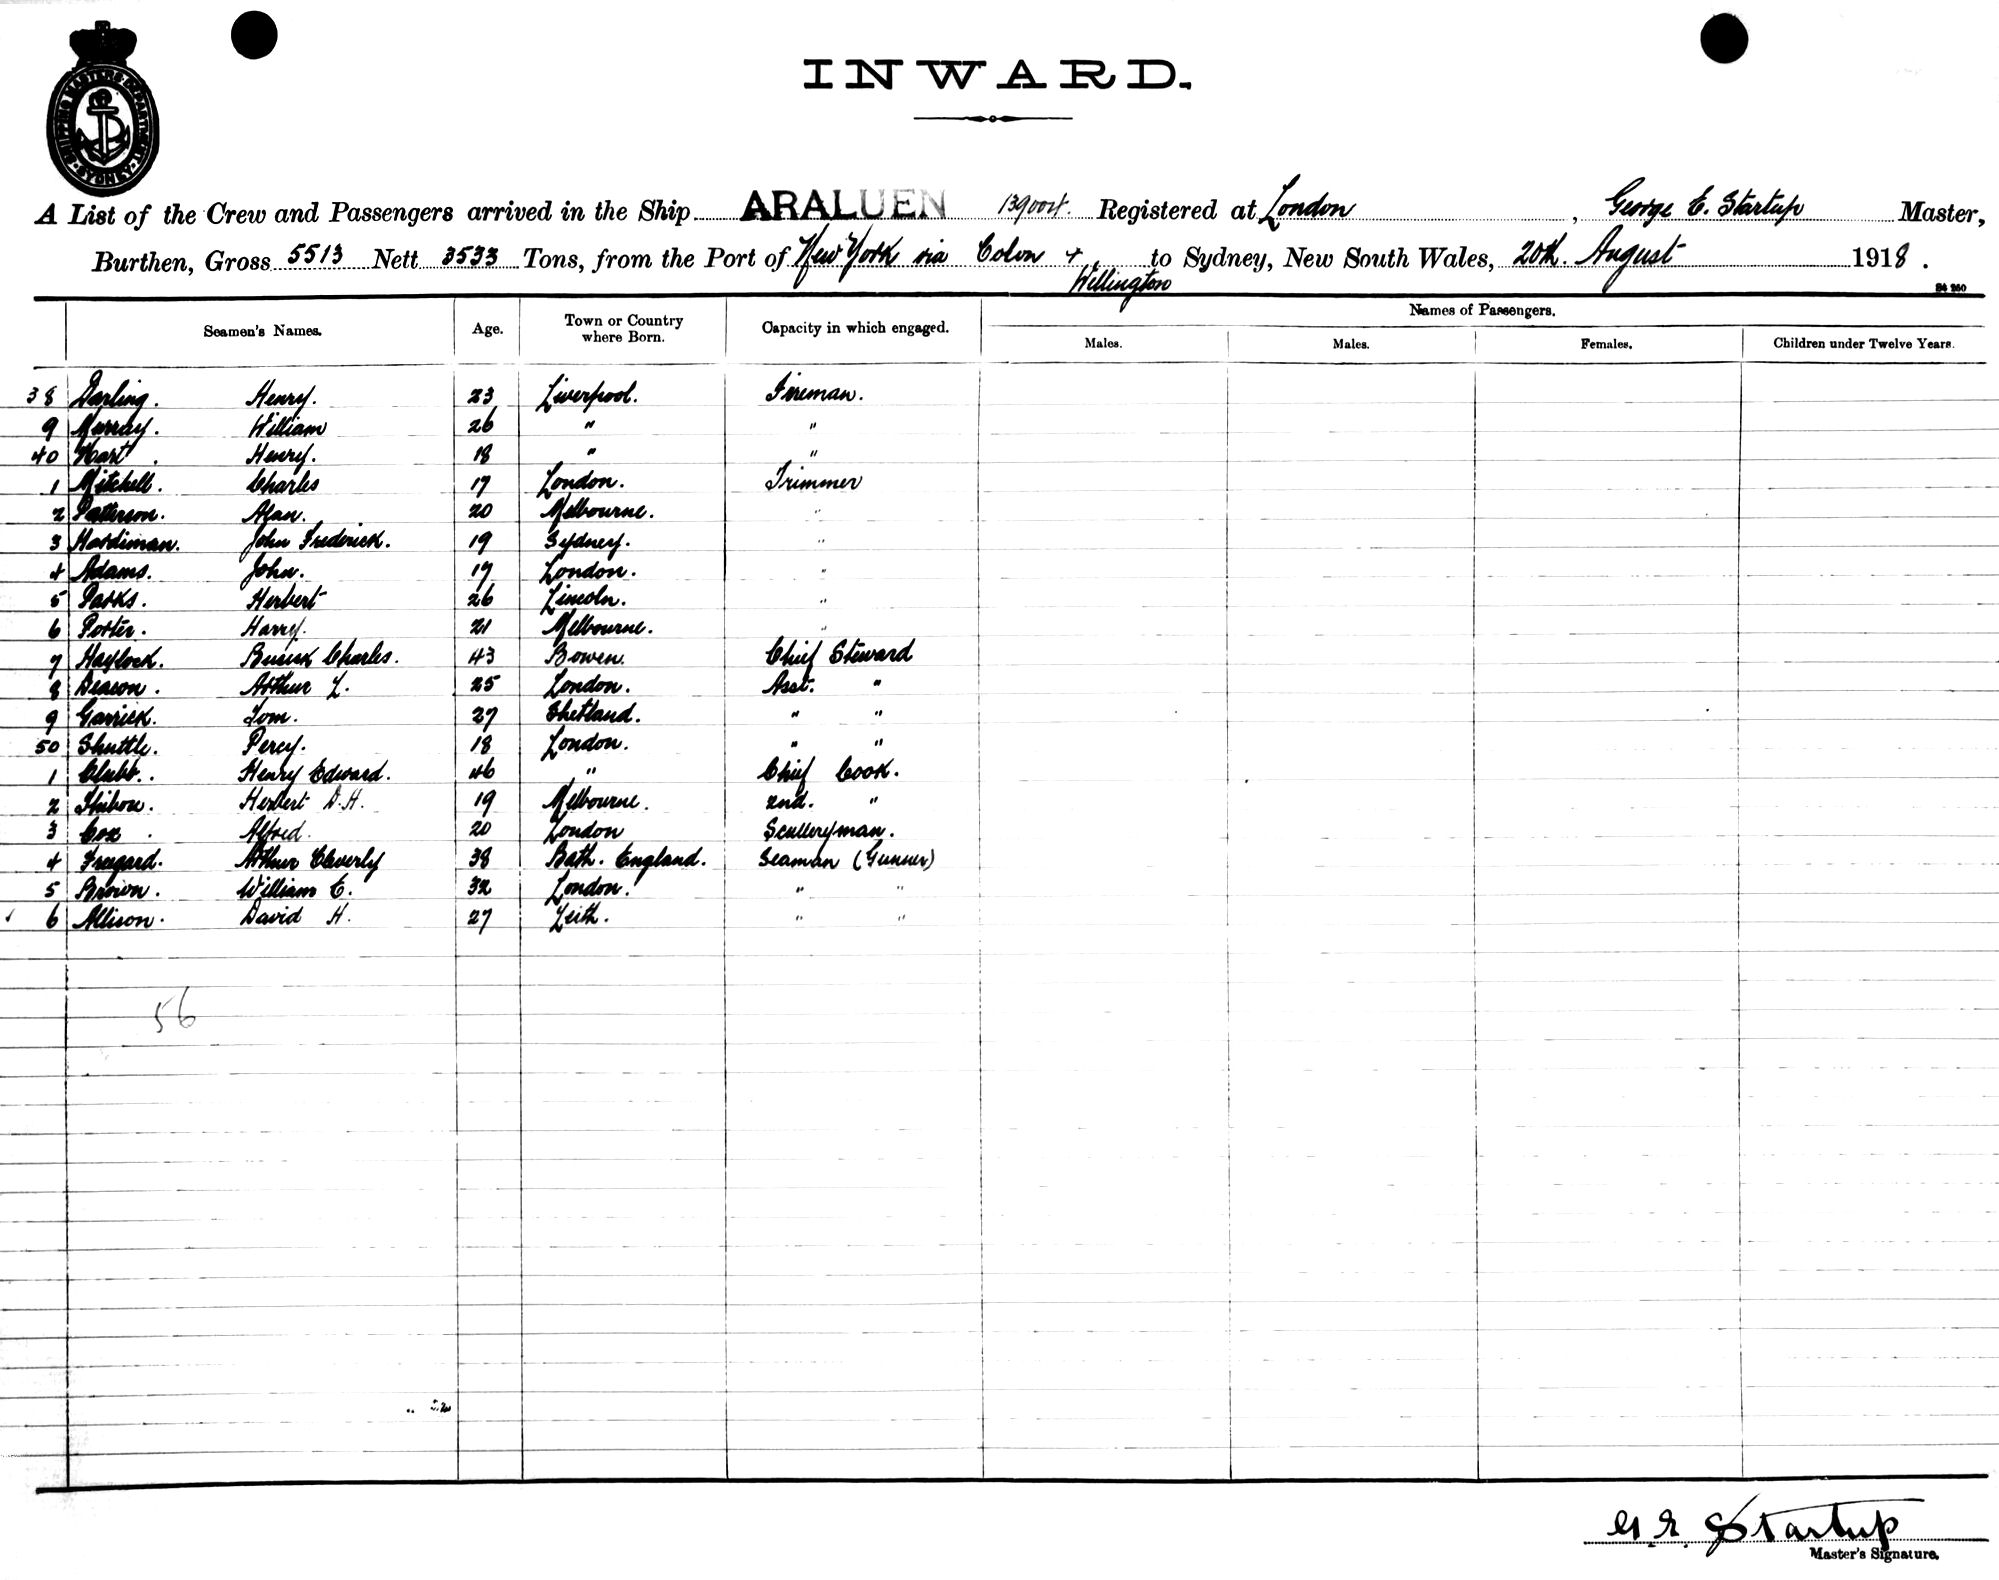 SHIPPING MASTERS DEPARTMENT SYDNEY
INWARD.
A List of the Crew and Passengers arrived in the Ship ARALUEN Registered at London, George E. Startup Master,
Burthen, Gross 5513 Nett 3533 Tons, from the Port of New York via Colon + to Sydney, New South Wales, 20th. August 1918.
Wellington
Seamen's Names. Age. Town or Country where Born. Capacity in which engaged. Names of Passengers.
Males. Males. Females. Children under Twelve Years.
38 Darling. Henry. 23 Liverpool. Fireman.
9 Murray. William 26 " "
40 Hart. Henry. 18 " "
1 Mitchell. Charles 17 London. Trimmer
2 Patterson. Alan. 20 Melbourne. "
3 Hardiman. John Frederick. 19 Sydney. "
4 Adams. John. 19 London. "
5 Parks. Herbert 26 Lincoln. "
6 Porter. Harry. 21 Melbourne. "
7 Haylock. Charles. 43 Bowen. Chief Steward
8 Deason. Arthur L. 25 London. Asst. "
9 Garrick. Tom. 27 Shetland. " "
50 Shuttle. Percy. 18 London. " "
1 Clubb. Henry Edward. 46 " Chief Cook.
2 Herbert D. H. 19 Melbourne. 2nd. "
3 Cox. Alfred. 20 London Sculleryman.
4 Freegard. Arthur Cleverly 38 Bath. England. Seaman (Gunner)
5 Brown. William E. 32 London. " "
6 Allison. David H. 27 Leith. " "
56
G. E. Startup
Master's Signature.